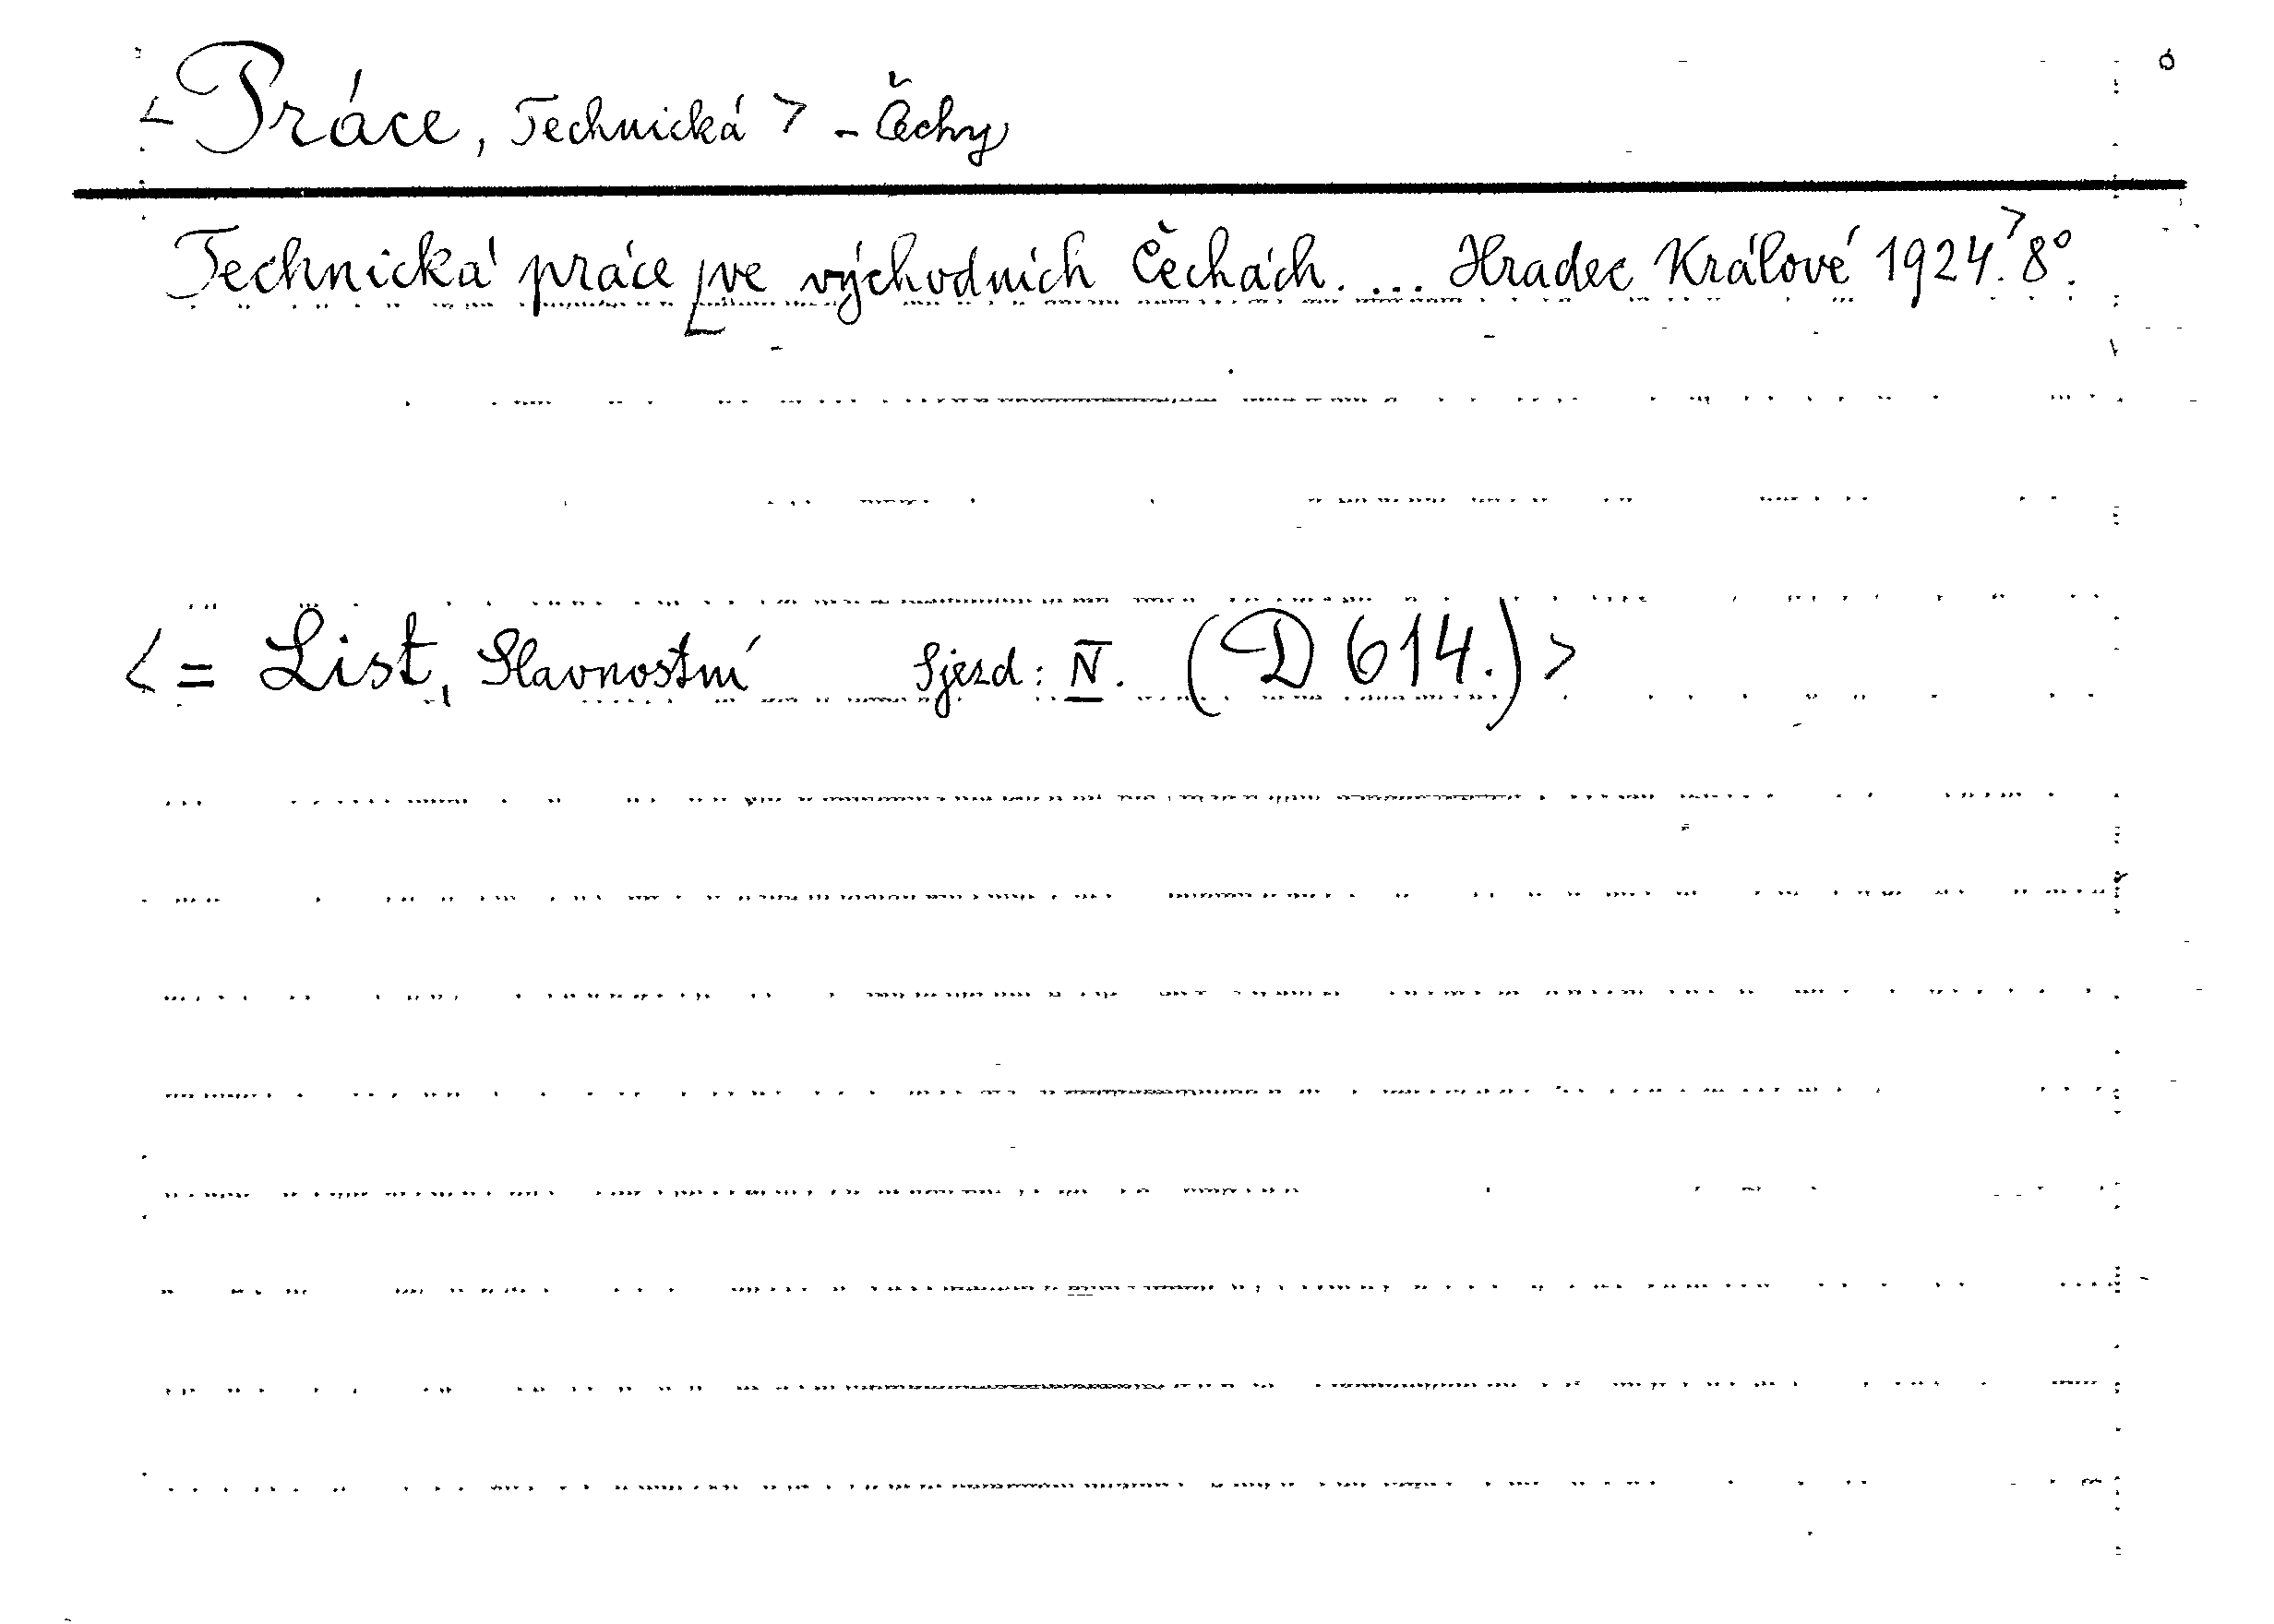 < Práce, Technická > - Čechy
Technická práce ve východních Čechách. ... Hradec Králové 1924.> 8°.
< = List, Slavnostní Sjezd: IV. (D 614.) >